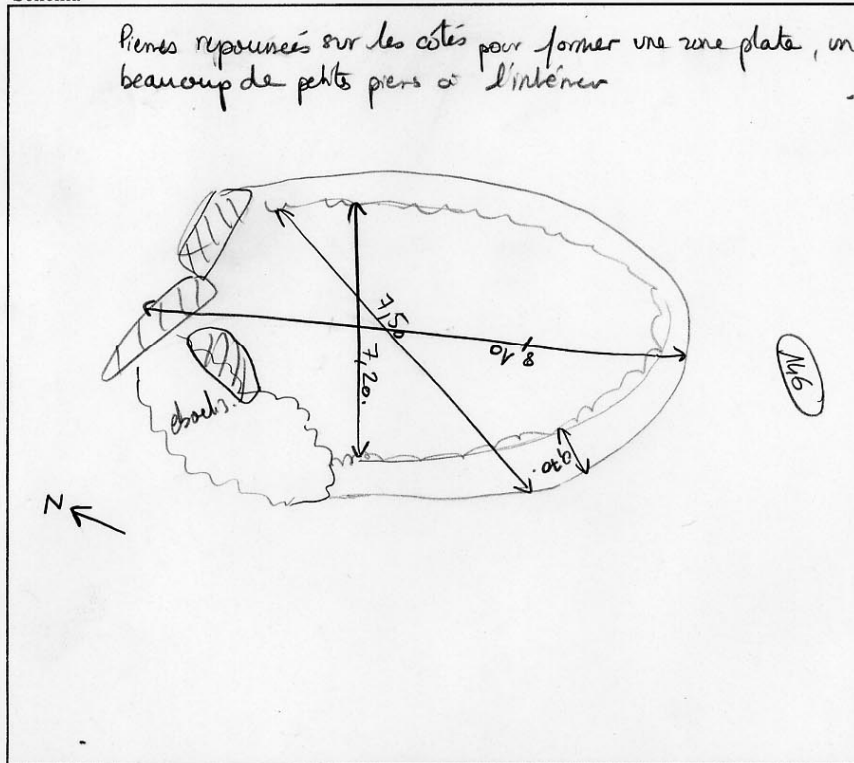 Pierres repoussées sur les côtés pour former une zone plate, un
beaucoup de petits piers à l'intérieur
7,50
7,20.
8,10
0,70.
eboulis.
146
N